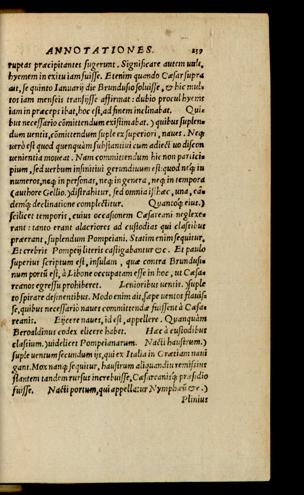 ANNOTATIONES. 239
ruptas præcipitantes fugerunt. Significare autem vult,
hyemem in exitu iam fuisse. Etenim quando Cæsar supra
ait, se quinto Ianuarij die Brundusio soluisse, & hic mul-
tos iam menseis transisse affirmat: dubio procul hyems
iam in præcipiti erat, hoc est, ad finem inclinabat. Qui-
bus necessario cõmittendum existimabat.) quibus suplen-
dum uentis, cõmittendum suple ex superiori, naues. Neq;
verò est quod quenquàm substantiui cum adiecti uo discon
uenientia moueat. Nam committendum hic non partici-
pium, sed uerbum infinitiui gerundiuum est: quod neq; in
numeros, neq; in personas, neq; in genera, neq; in tempora
(authore Gellio.) distrahitur, sed omnia isthæc, una, eã-
demq; declinatione complectitur. Quantoq; eius.)
scilicet temporis, cuius occasionem Cæsareani neglexe-
rant: tanto erant alacriores ad custodias qui classibus
præerant, suplendum Pompeiani. Statim enim sequitur,
Et crebris Pompeij literis castigabantur &c. Et paulo
superius scriptum est, insulam, quæ contra Brundusi-
num portũ est, à Libone occupatam esse in hoc, ut Cæsa-
reanos egressu prohiberet. Lenioribus uentis.) suple
to spirare desinentibus. Modo enim ait, sæpe uentos flauis-
se, quibus necessario naues committendæ fuissent à Cæsa-
reanis. Eijcere naues, id est, appellere. Quanquàm
Beroaldinus codex elicere habet. Hæc à custodibus
classium.) uidelicet Pompeianarum. Nacti haustrum.)
suple uentum secundum ijs, qui ex Italia in Græciam naui
gant. Mox nanq; sequitur, haustrum aliquandiu remissius
flantem tandem rursus increbuisse, Cæsareanisq; præsidio
fuisse. Nacti portum, qui appellatur Nymphæũ &c.)
Plinius